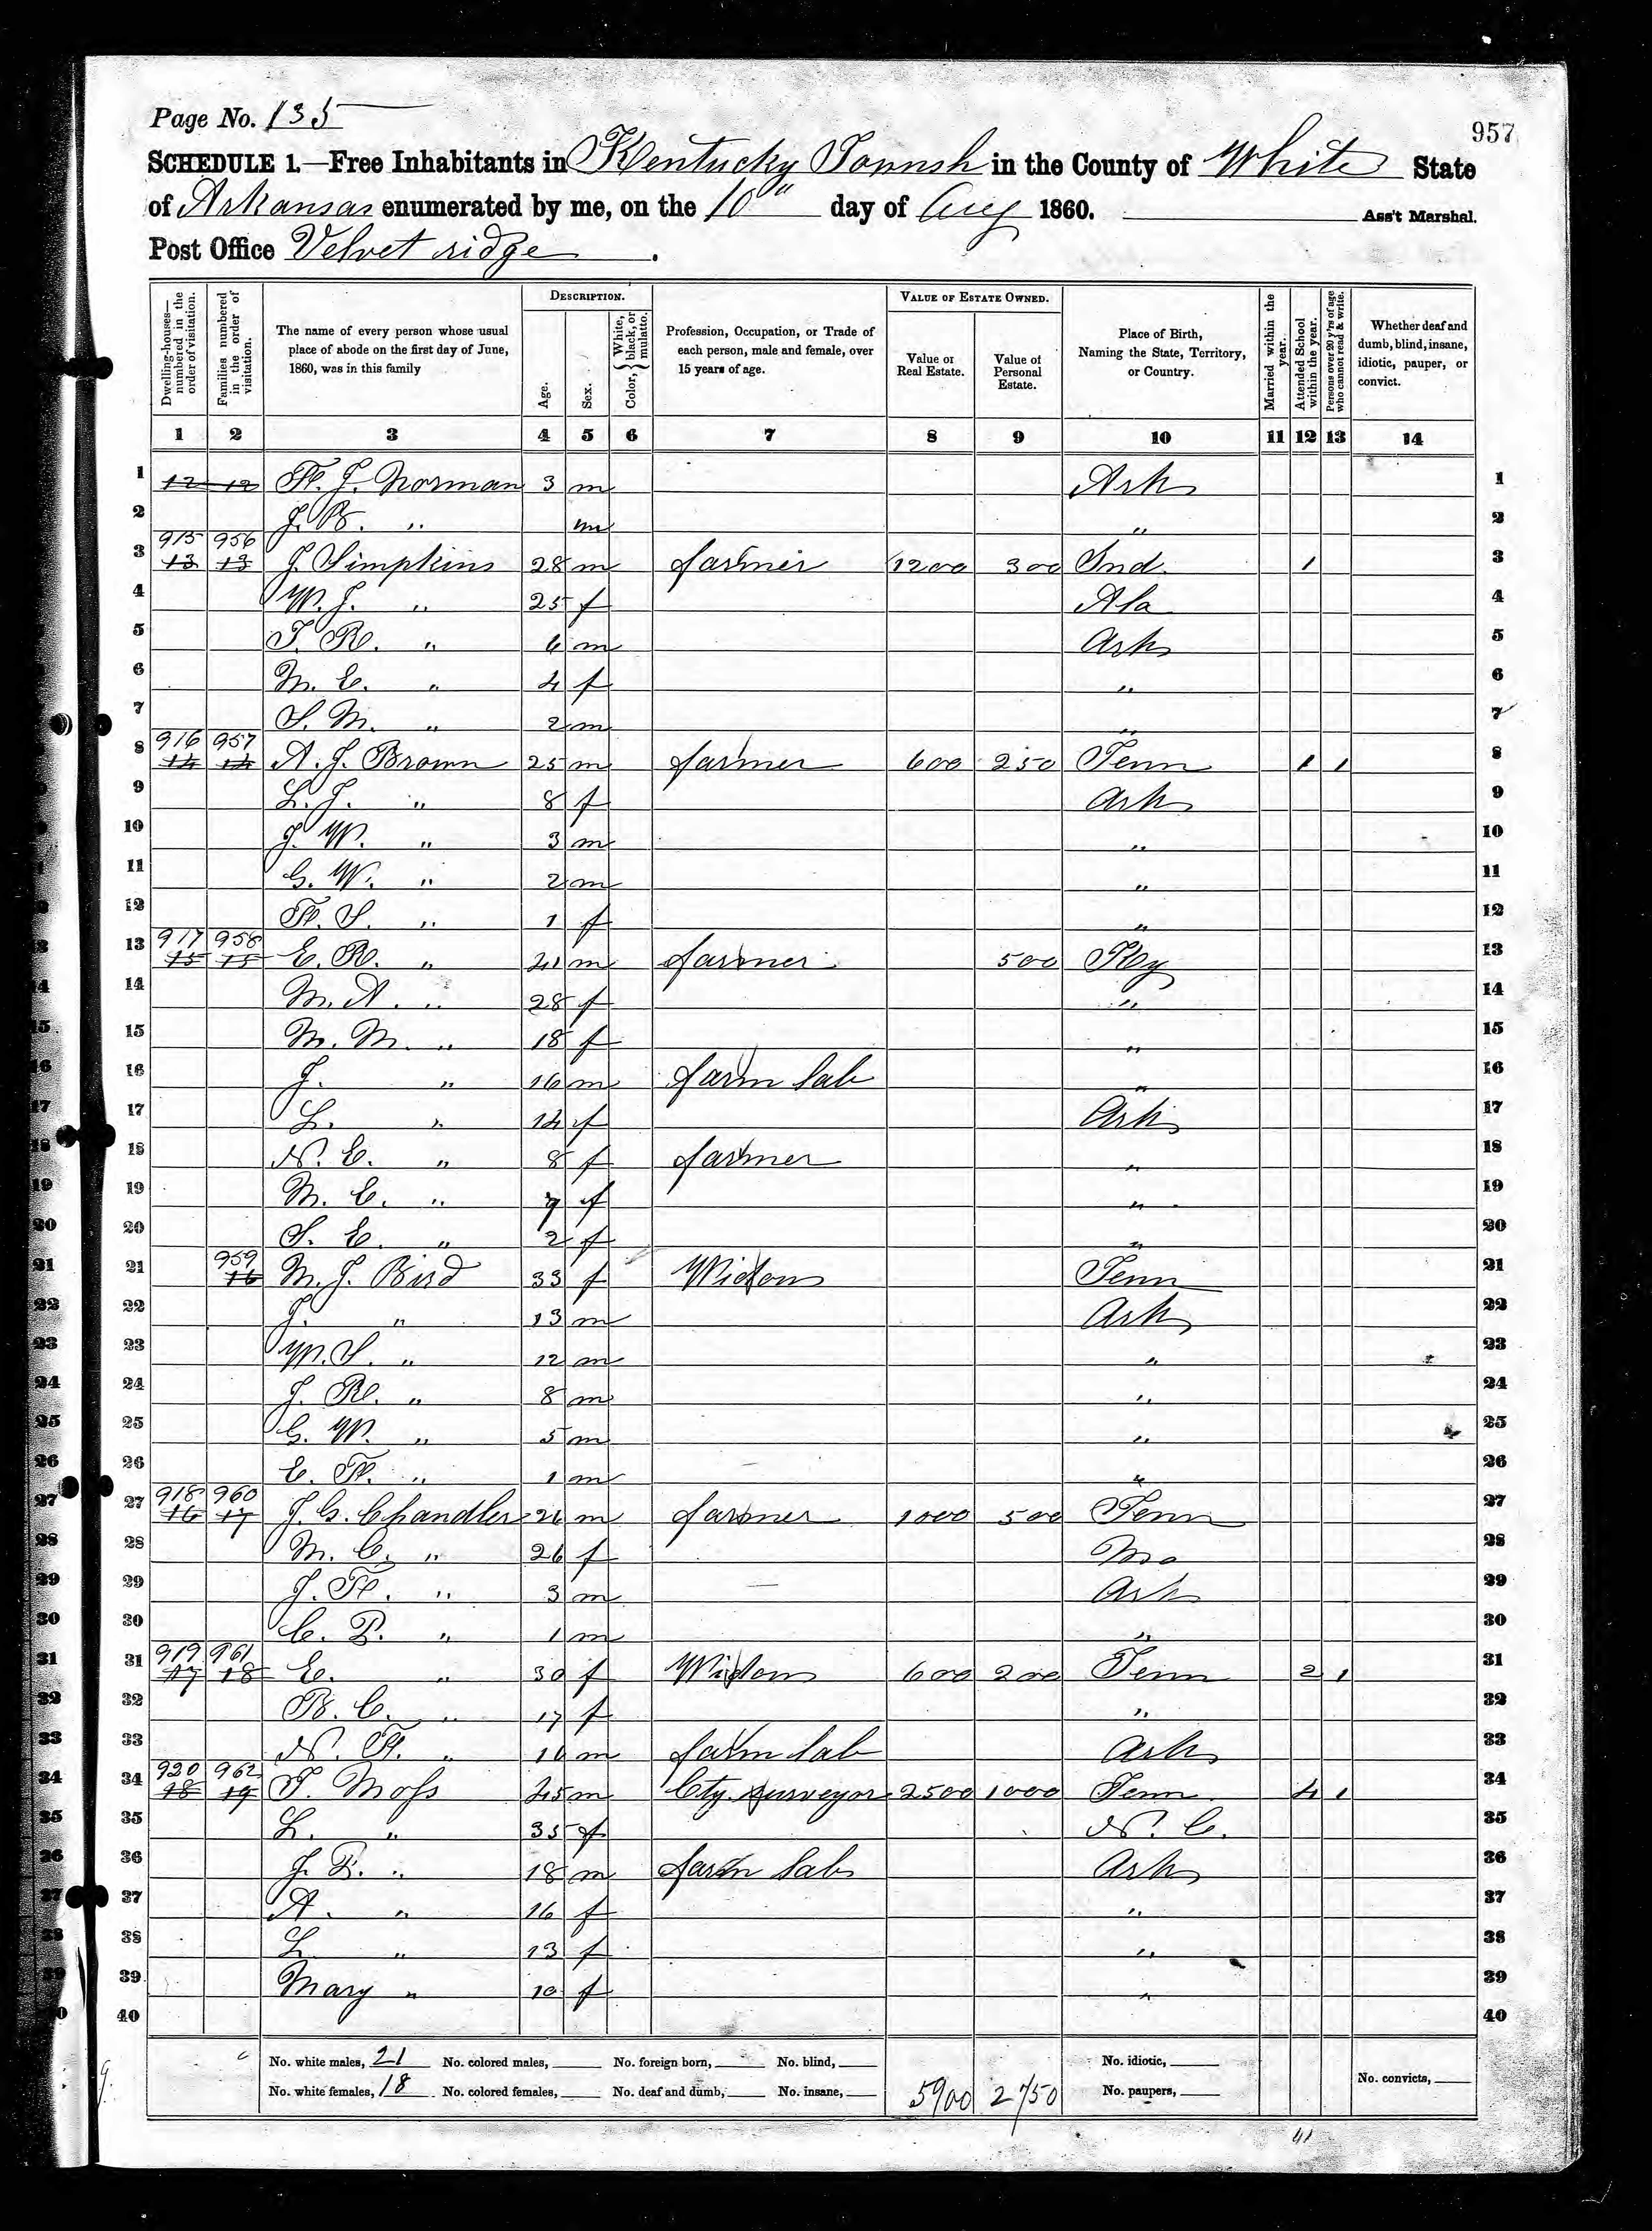 Page No. 135
957
SCHEDULE 1.—Free Inhabitants in Kentucky Townsh in the County of White State
of Arkansas enumerated by me, on the 10" day of Aug 1860. Ass't Marshal.
Post Office Velvet ridge.
Dwelling-houses—numbered in the order of visitation.
Families numbered in the order of visitation.
The name of every person whose usual place of abode on the first day of June, 1860, was in this family
DESCRIPTION.
Age.
Sex.
Color, { White, black, or mulatto.
Profession, Occupation, or Trade of each person, male and female, over 15 years of age.
VALUE OF ESTATE OWNED.
Value of Real Estate.
Value of Personal Estate.
Place of Birth, Naming the State, Territory, or Country.
Married within the year.
Attended School within the year.
Persons over 20 y'rs of age who cannot read & write.
Whether deaf and dumb, blind, insane, idiotic, pauper, or convict.
1 2 3 4 5 6 7 8 9 10 11 12 13 14
1 12 12 H. J. Norman 3 m Ark 1
2 J. B. " m " 2
915 956
3 13 13 J. Simpkins 28 m farmer 1200 300 Ind. 1 3
4 W. J. " 25 f Ala 4
5 T. R. " 6 m Ark 5
6 M. E. " 4 f " 6
7 S. M. " 2 m " 7
916 957
8 14 14 A. J. Brown 25 m farmer 600 250 Tenn 1 1 8
9 L. J. " 8 f Ark 9
10 J. W. " 3 m " 10
11 G. W. " 2 m " 11
12 H. S. " 1 f " 12
917 958
13 15 15 E. R. " 41 m farmer 500 Ky 13
14 M. A. " 28 f " 14
15 M. M. " 18 f " 15
16 J. " 16 m farm lab " 16
17 L. " 14 f Ark 17
18 N. E. " 8 f farmer " 18
19 M. C. " 7 f " 19
20 S. E. " 2 f " 20
959
21 16 M. J. Bird 33 f Widow Tenn 21
22 J. " 13 m Ark 22
23 W. S. " 12 m " 23
24 J. R. " 8 m " 24
25 G. W. " 5 m " 25
26 E. H. " 1 m " 26
918 960
27 16 17 J. G. Chandler 26 m farmer 1000 500 Tenn 27
28 M. C. " 26 f Mo 28
29 J. H. " 3 m Ark 29
30 C. P. " 1 m " 30
919 961
31 17 18 E. " 30 f Widow 600 200 Tenn 2 1 31
32 B. C. " 17 f " 32
33 N. H. " 16 m farm lab Ark 33
920 962
34 18 19 T. Moss 45 m Cty. Surveyor 2500 1000 Tenn 4 1 34
35 L. " 35 f N. C. 35
36 J. B. " 18 m farm lab Ark 36
37 A. " 16 f " 37
38 L " 13 f " 38
39 Mary " 10 f " 39
40 40
No. white males, 21 No. colored males, No. foreign born, No. blind, No. idiotic,
No. white females, 18 No. colored females, No. deaf and dumb, No. insane, 5900 2750 No. paupers, No. convicts,
41